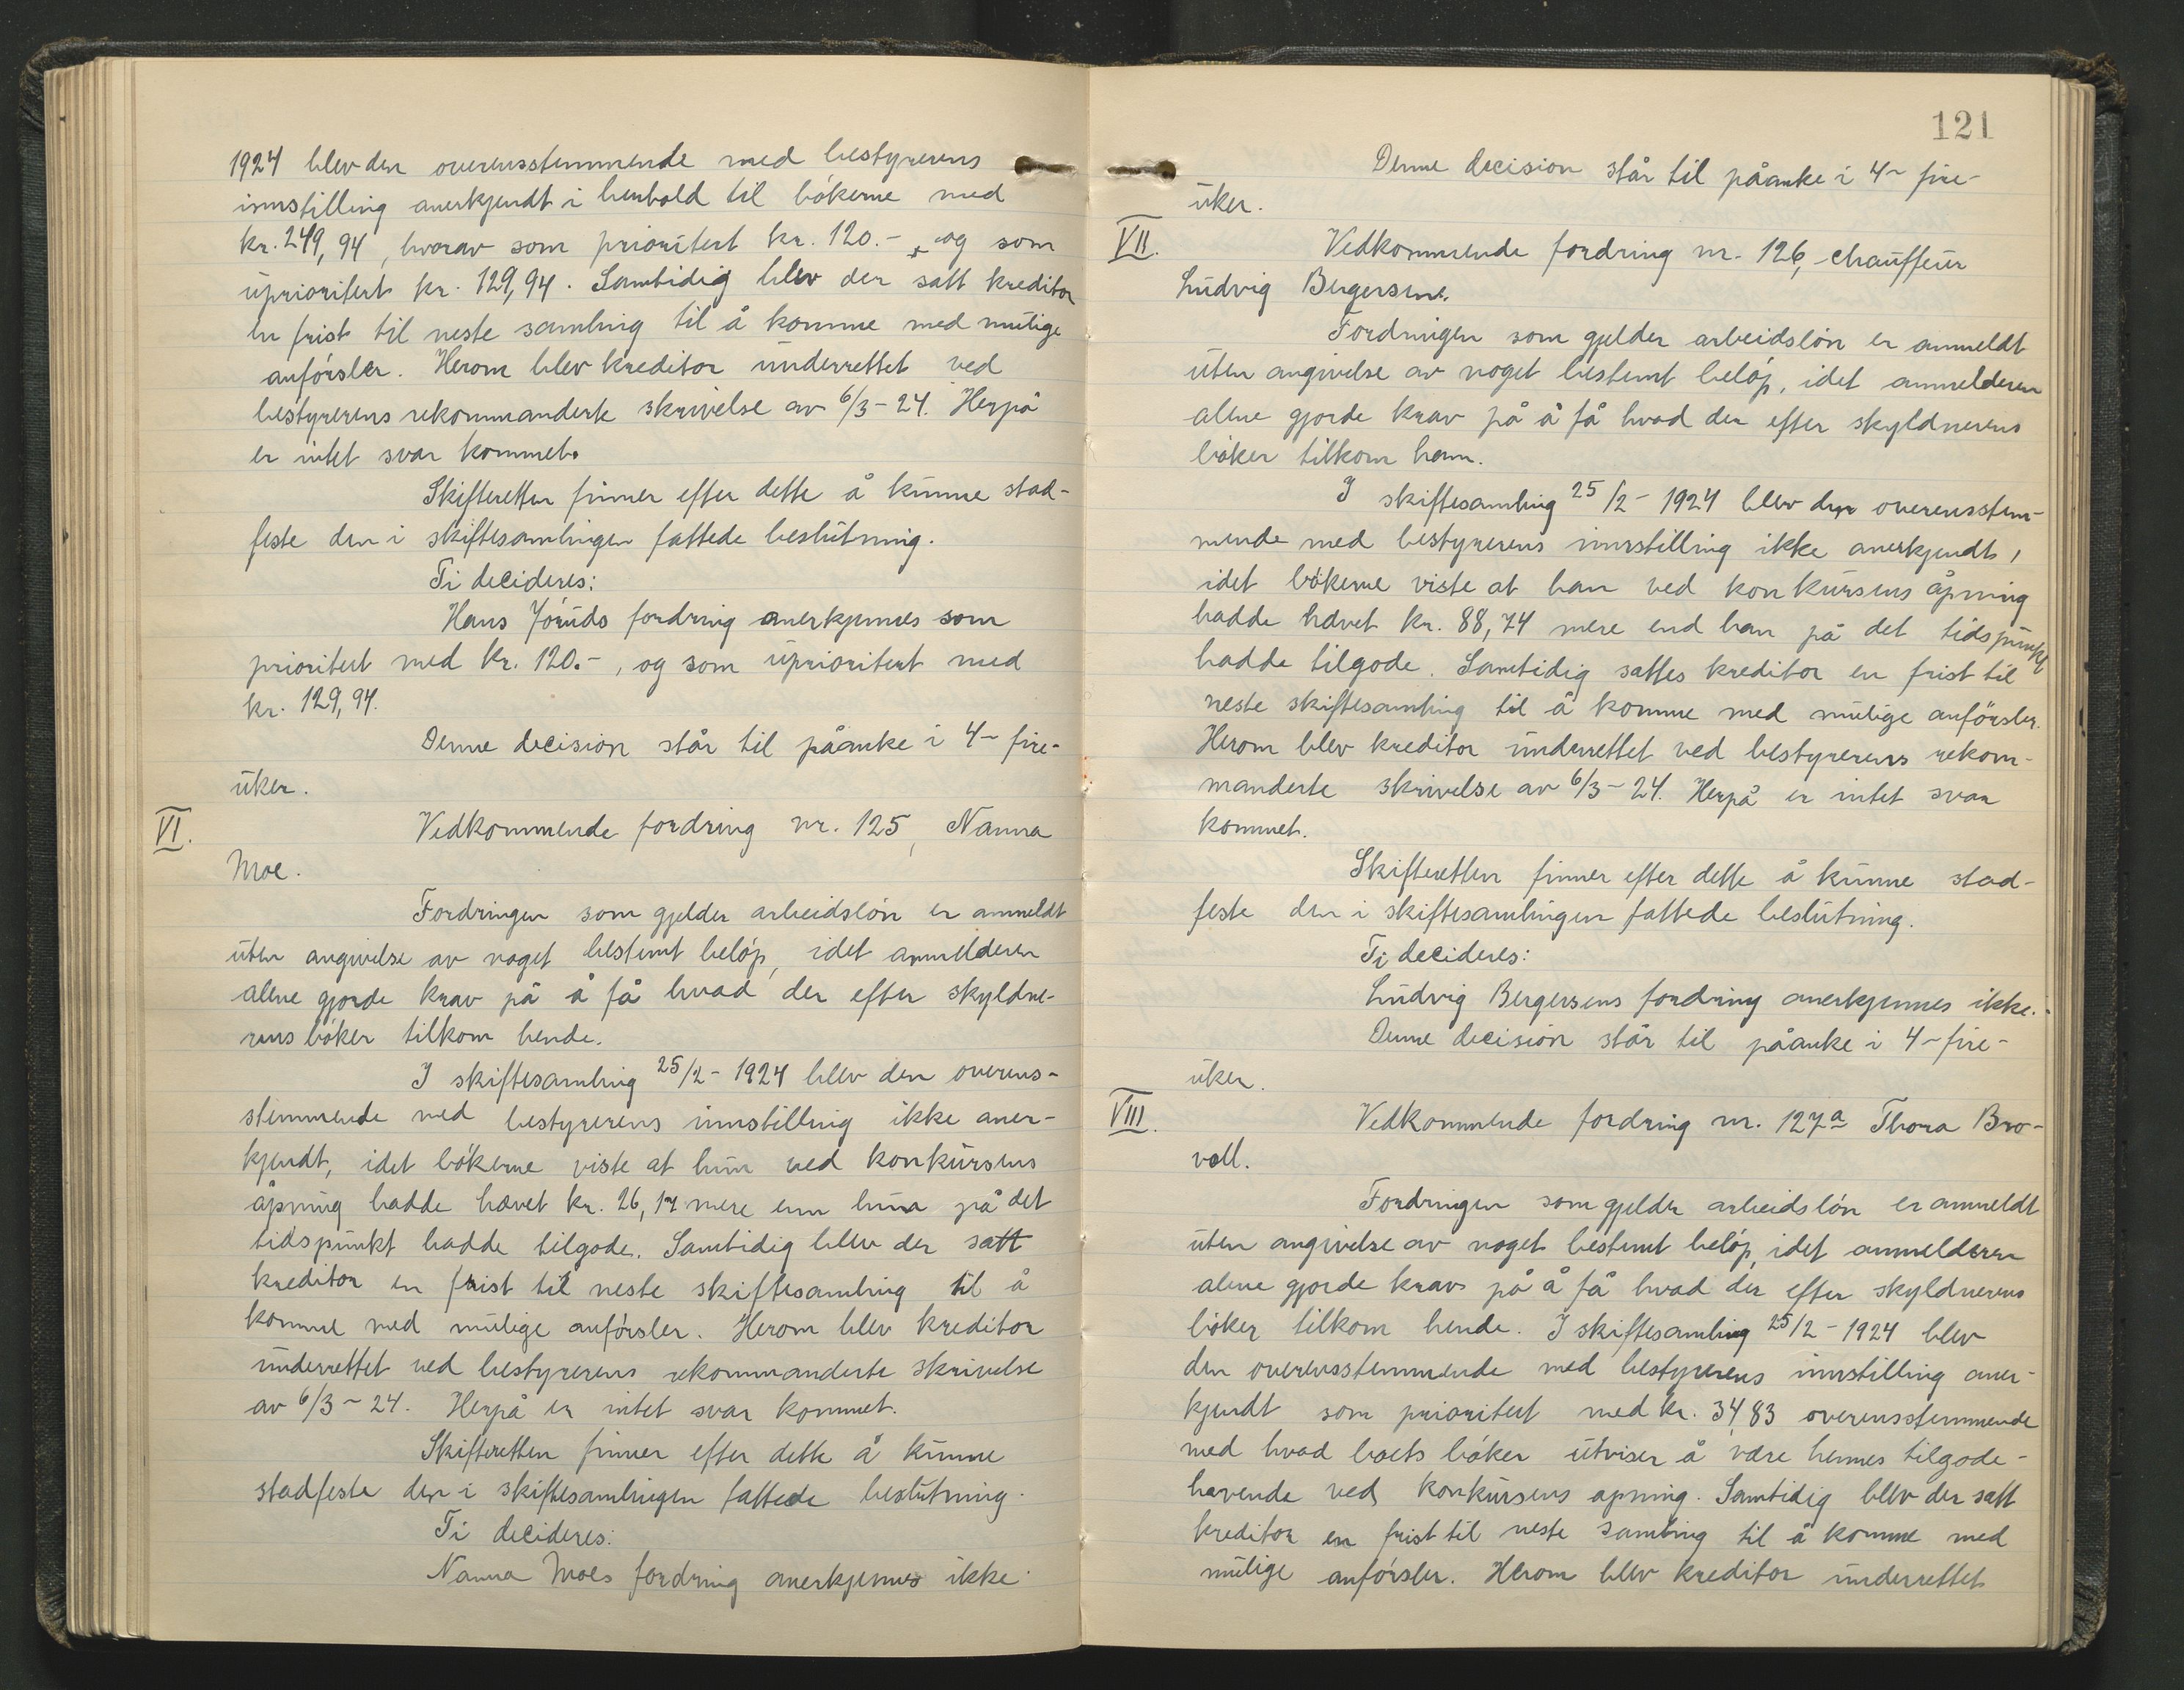 1924 blev den overensstemmende med bestyrerens
innstilling anerkjendt i henhold til bökerne med
kr. 249,94, hvorav som prioritert kr. 120.- , og som
uprioritert kr. 129,94. Samtidig blev der satt kreditor
en frist til neste samling til å komme med mulige
anförsler. Herom blev kreditor underrettet ved
bestyrerens rekommanderte skrivelse av 6/3-24. Herpå
er intet svar kommet.
Skifteretten finner efter dette å kunne stad-
feste den i skiftesamlingen fattede beslutning.
Ti decideres:
Hans fordring anerkjennes som
prioritert med kr. 120.-, og som uprioritert med
kr. 129,94.
Denne decision står til påanke i 4- fire-
uker.
VI. Vedkommende fordring nr. 125, Nanna
Moe.
Fordringen som gjelder arbeidslön er anmeldt
uten angivelse av noget bestemt belöp, idet anmelderen
alene gjorde krav på å få hvad der efter skyldne-
rens böker tilkom hende.
I skiftesamling 25/2-1924 blev den overens-
stemmende med bestyrerens innstilling ikke aner-
kjendt, idet bökerne viste at hun ved konkursens
åpning hadde hævet kr. 26, mere enn hun på det
tidspunkt hadde tilgode. Samtidig blev der satt
kreditor en frist til neste skiftesamling til å
komme med mulige anförsler. Herom blev kreditor
underrettet ved bestyrerens rekommanderte skrivelse
av 6/3-24. Herpå er intet svar kommet.
Skifteretten finner efter dette å kunne
stadfeste den i skiftesamlingen fattede beslutning.
Ti decideres:
Nanna Moes fordring anerkjennes ikke.
121
Denne decision står til påanke i 4- fire-
uker.
VII. Vedkommende fordring nr. 126, chauffeur
Ludvig Bergersen.
Fordringen som gjelder arbeidslön er anmeldt
uten angivelse av noget bestemt belöp, idet anmelderen
alene gjorde krav på å få hvad der efter skyldnerens
böker tilkom ham.
I skiftesamling 25/2-1924 blev den overensstem-
mende med bestyrerens innstilling ikke anerkjendt,
idet bökerne viste at han ved konkursens åpning
hadde hævet kr. 88,74 mere end han på det tidspunkt
hadde tilgode. Samtidig sattes kreditor en frist til
neste skiftesamling til å komme med mulige anförsler.
Herom blev kreditor underrettet ved bestyrerens rekom-
manderte skrivelse av 6/3-24. Herpå er intet svar
kommet.
Skifteretten finner efter dette å kunne stad-
feste den i skiftesamlingen fattede beslutning.
Ti decideres:
Ludvig Bergersens fordring anerkjennes ikke.
Denne decision står til påanke i 4-fire-
uker.
VIII. Vedkommende fordring nr. 127a Thora Bro-
voll.
Fordringen som gjelder arbeidslön er anmeldt
uten angivelse av noget bestemt belöp, idet anmelderen
alene gjorde krav på å få hvad der efter skyldnerens
böker tilkom hende. I skiftesamling 25/2-1924 blev
den overensstemmende med bestyrerens innstilling aner-
kjendt som prioritert med kr. 34,83 overensstemmende
med hvad boets böker utviser å være hennes tilgode-
havende ved konkursens apning. Samtidig blev der satt
kreditor en frist til neste samling til å komme med
mulige anförsler. Herom blev kreditor underrettet